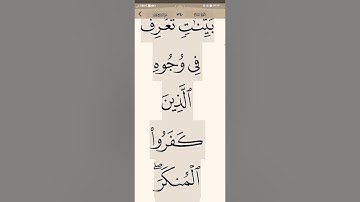 بَيِّنَـٰتٍۢ تَعْرِفُ
فِى وُجُوهِ
ٱلَّذِينَ
كَفَرُوا۟
ٱلْمُنكَرَ ۖ